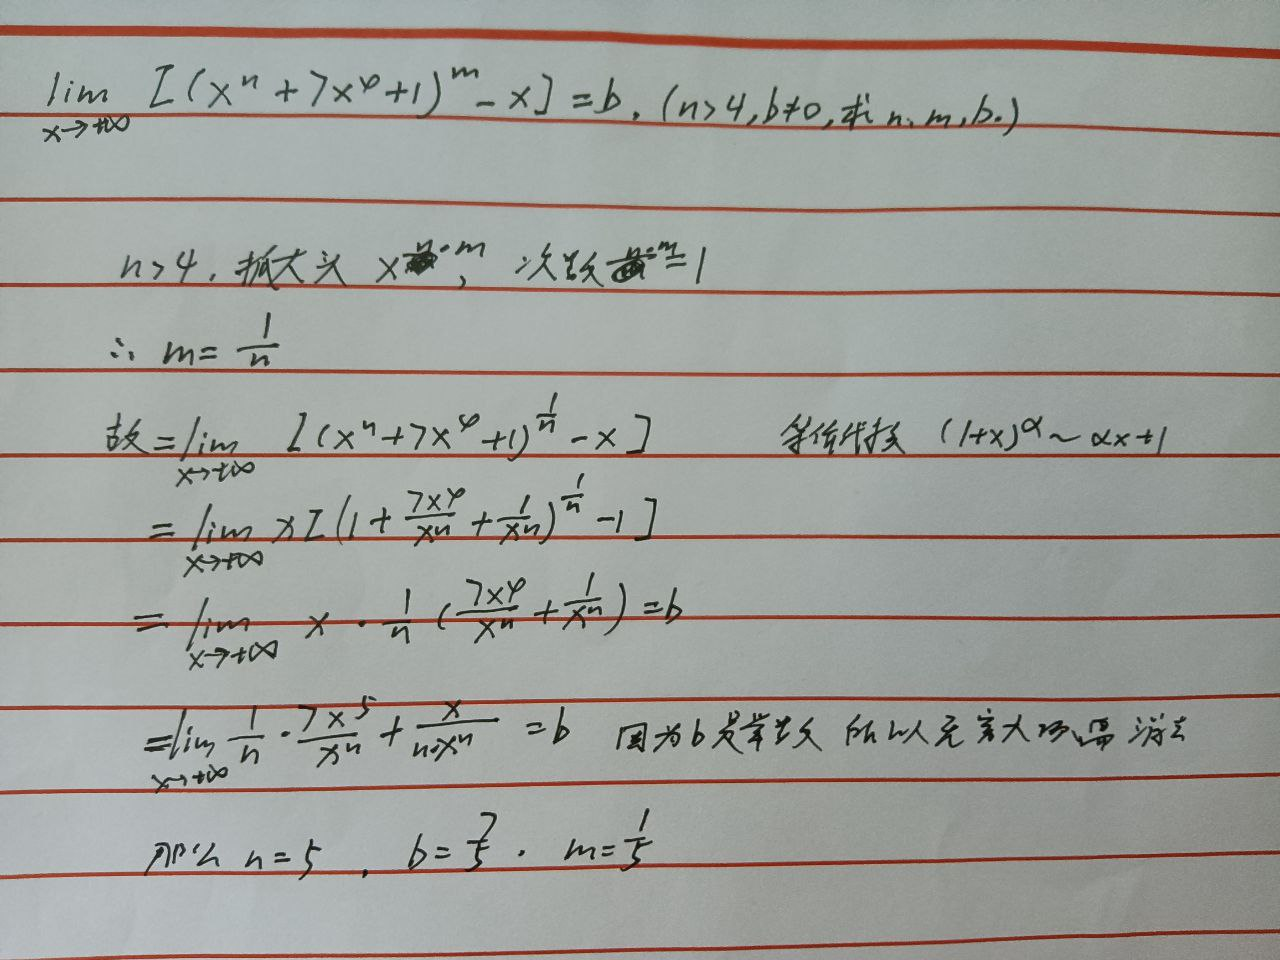 lim x→+∞ [(xⁿ + 7x⁴ + 1)ᵐ - x] = b. (n>4, b≠0, 求 n、m, b.)
n>4. 抓大头 xⁿ·ᵐ, 次数 n·m = 1
∴ m = 1/n
故 = lim x→+∞ [(xⁿ + 7x⁴ + 1)^(1/n) - x] 等价代换 (1+x)^α ~ αx+1
= lim x→+∞ x[(1 + 7x⁴/xⁿ + 1/xⁿ)^(1/n) - 1]
= lim x→+∞ x · 1/n (7x⁴/xⁿ + 1/xⁿ) = b
= lim x→+∞ 1/n · 7x⁵/xⁿ + x/(n·xⁿ) = b 因为b是常数 所以无穷大项需消去
那么 n = 5, b = 7/5. m = 1/5